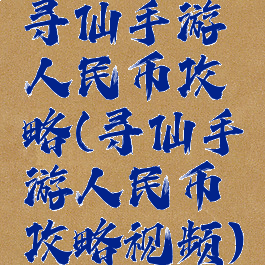 寻仙手游
人民币攻
略(寻仙手
游人民币
攻略视频)